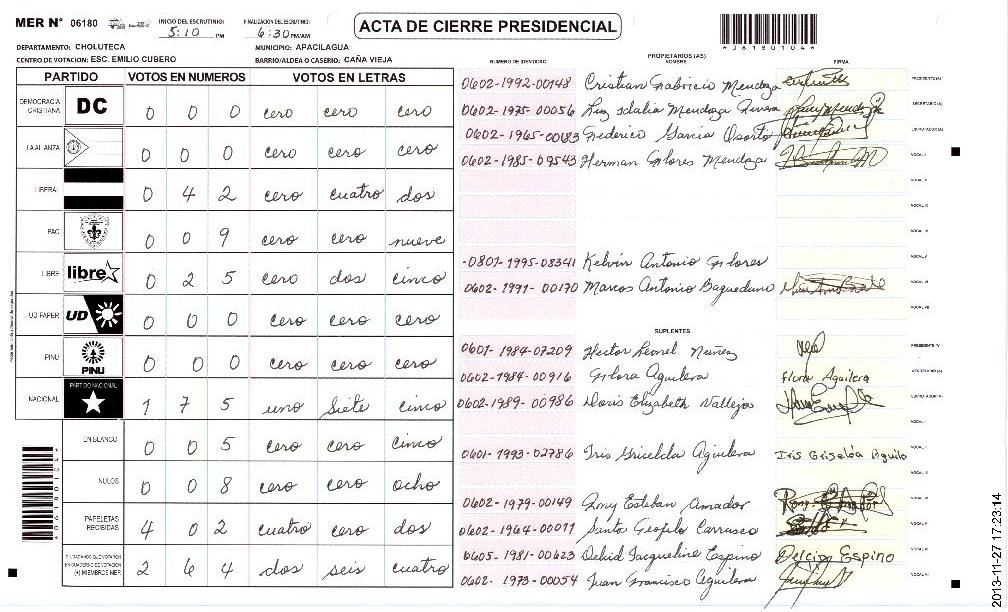 MER N° 06180
INICIO DEL ESCRUTINIO: 5:10 PM
FINALIZACIÓN DEL ESCRUTINIO: 6:30 PM/AM
ACTA DE CIERRE PRESIDENCIAL
A06180104
DEPARTAMENTO: CHOLUTECA
MUNICIPIO: APACILAGUA
CENTRO DE VOTACION: ESC. EMILIO CUBERO
BARRIO/ALDEA O CASERIO: CAÑA VIEJA
PARTIDO VOTOS EN NUMEROS VOTOS EN LETRAS
DEMOCRACIA CRISTIANA DC 0 0 0 cero cero cero
LA ALIANZA 0 0 0 cero cero cero
LIBERAL 0 4 2 cero cuatro dos
PAC 0 0 9 cero cero nueve
LIBRE libre 0 2 5 cero dos cinco
UD FAPER UD 0 0 0 cero cero cero
PINU PINU 0 0 0 cero cero cero
NACIONAL PARTIDO NACIONAL 1 7 5 uno siete cinco
EN BLANCO 0 0 5 cero cero cinco
NULOS 0 0 8 cero cero ocho
PAPELETAS RECIBIDAS 4 0 2 cuatro cero dos
CIUDADANOS QUE VOTARON EN CUADERNO DE VOTACION (+) MIEMBROS MER 2 6 4 dos seis cuatro
PROPIETARIOS (AS)
NUMERO DE IDENTIDAD NOMBRE FIRMA
0602-1992-00148 Cristian Gabricio Mendoza PRESIDENTE (A)
0602-1975-00056 Luz Idalia Mendoza SECRETARIO (A)
0602-1965-00083 Frederico Garcia Osorto ESCRUTADOR (A)
0602-1985-09543 Herman Flores Mendoza VOCAL I
VOCAL II
VOCAL III
VOCAL IV
-0801-1995-08341 Kelvin Antonio Flores VOCAL V
0602-1991-00170 Marcos Antonio Baquedano VOCAL VI
VOCAL VII
SUPLENTES
0601-1984-07209 Hector Leonel Nuñez PRESIDENTE (A)
0602-1984-00916 Flora Aguilera Flora Aguilera SECRETARIO (A)
0602-1989-00986 Doris Elizabeth Vallejo ESCRUTADOR (A)
VOCAL I
0601-1993-02786 Iris Griselda Aguilera Iris Griselda Aguile
VOCAL III
0602-1979-00149 Rony Esteban Amador
0602-1964-00011 Santo Geofelo Carrasco
0605-1981-00623 Delcid Jacqueline Espino Delcid Espino
0602-1973-00054 Juan Francisco Aguilera
A06180104
2013-11-27 17:23:14